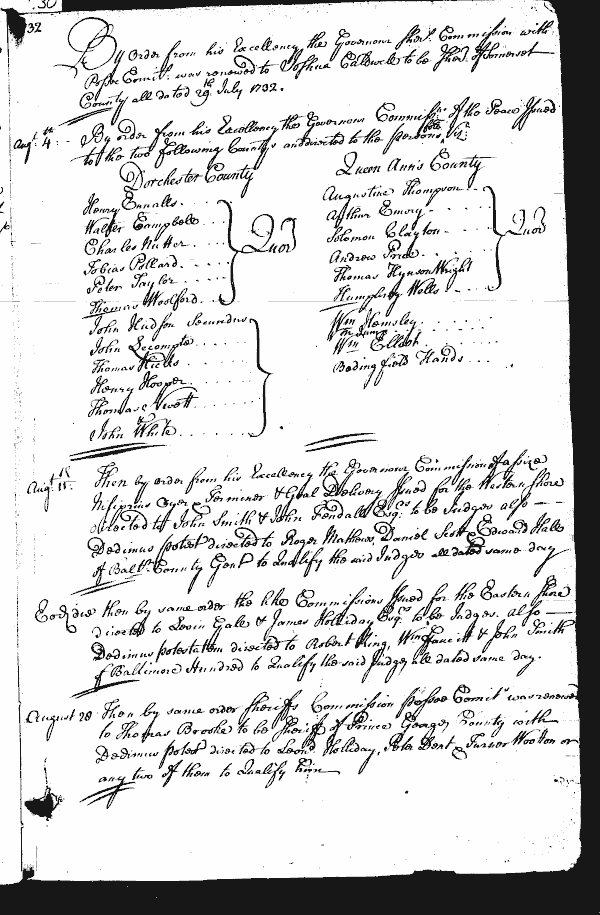 30
32
By Order from his Excellency the Governour Sher: Commission with
Posse Comit: was renewed to Joshua Caldwell to be Sher: of Somerset
County all dated 29th July 1732.
Augt. 4th By order from his Excellency the Governour Commissns. of the Peace Issued
to the two following Countys and directed to the persons, Viz:
Dorchester County
Queen Ann's County
Henry Ennalls
Walter Campbell
Charles Nutter
Tobias Pollard
Peter Taylor
Thomas Woolford
Quor
John Hudson Secundus
John Lecompte
Thomas Hicks
Henry Hooper
Thomas Nevett
John White
Augustine Thompson
Arthur Emory
Solomon Clayton
Andrew Price
Thomas Hynson Wright
Humphrey Wells
Quor
Wm Hemsley
Wm Elliott
Bedingfield Hands
Augt. 15th Then by order from his Excellency the Governour Commission of assize
Nisiprius Oyer & Terminer & Goal Delivery Issued for the Western Shore
directed to John Smith & John Tendall Esqrs. to be Judges also
Dedimus potest directed to Roger Mathews, Daniel Scott & Edward Hall
of Balt: County Gent to Qualify the said Judges all dated same day
Eod. die then by same order the like Commissions Issued for the Eastern Shore
directed to Levin Gale & James Holliday Esqrs. to be Judges. also
Dedimus potestatem directed to Robert King, Wm Faucitt & John Smith
of Baltimore Hundred to Qualify the said Judges all dated same day.
August 28 Then by same order Sheriffs Commission & posse Comits was renewed
to Thomas Brooke to be Sheriff of Prince Georges County with
Dedimus potest directed to Leond Holliday, Peter Dent & Turner Wooton or
any two of them to Qualify him